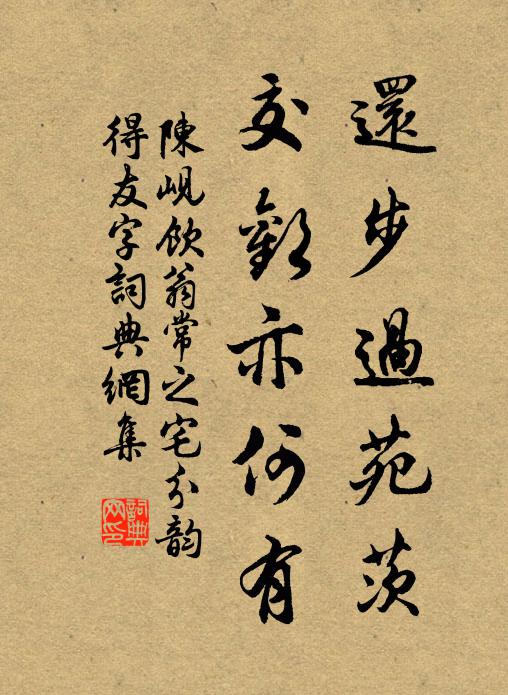 還步過苑茨
交歡亦何有
陳峴飲翁常之宅分韵
得友字詞典網集
詞典
网印